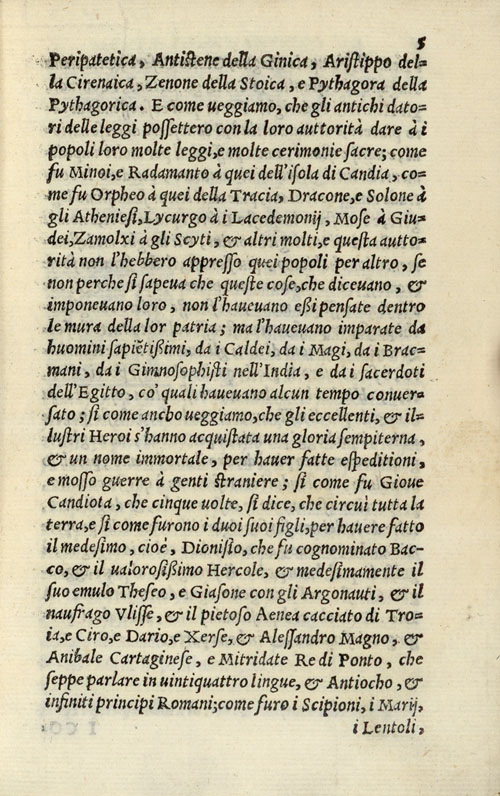 5
Peripatetica, Antistene della Ginica, Aristippo del=
la Cirenaica, Zenone della Stoica, e Pythagora della
Pythagorica. E come ueggiamo, che gli antichi dato=
ri delle leggi possettero con la loro auttorità dare à i
popoli loro molte leggi, e molte cerimonie sacre; come
fu Minoi, e Radamanto à quei dell'isola di Candia, co=
me fu Orpheo à quei della Tracia, Dracone, e Solone à
gli Atheniesi, Lycurgo à i Lacedemonij, Mose à Giu=
dei, Zamolxi à gli Scyti, & altri molti, e questa autto=
rità non l'hebbero appresso quei popoli per altro, se
non perche si sapeua che queste cose, che diceuano, &
imponeuano loro, non l'haueuano eßi pensate dentro
le mura della lor patria; ma l'haueuano imparate da
huomini sapiētißimi, da i Caldei, da i Magi, da i Brac=
mani, da i Gimnosophisti nell'India, e da i sacerdoti
dell'Egitto, co' quali haueuano alcun tempo conuer=
sato; si come ancho ueggiamo, che gli eccellenti, & il=
lustri Heroi s'hanno acquistata una gloria sempiterna,
& un nome immortale, per hauer fatte espeditioni,
e mosso guerre à genti straniere; si come fu Gioue
Candiota, che cinque uolte, si dice, che circuì tutta la
terra, e si come furono i duoi suoi figli, per hauere fatto
il medesimo, cioè, Dionisio, che fu cognominato Bac-
co, & il ualorosißimo Hercole, & medesimamente il
suo emulo Theseo, e Giasone con gli Argonauti, & il
naufrago Vlisse, & il pietoso Aenea cacciato di Tro=
ia, e Ciro, e Dario, e Xerse, & Alessandro Magno, &
Anibale Cartaginese, e Mitridate Re di Ponto, che
seppe parlare in uintiquattro lingue, & Antiocho, &
infiniti principi Romani; come furo i Scipioni, i Marij,
i Lentoli,